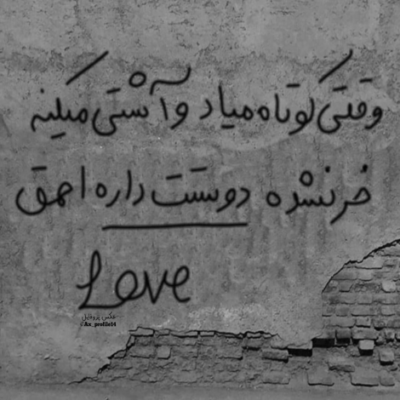 وقتی کوتاه میاد و آشتی میکنه
خر نشده دوستت داره احمق
Love
عکس پروفایل
@Ax_profile14